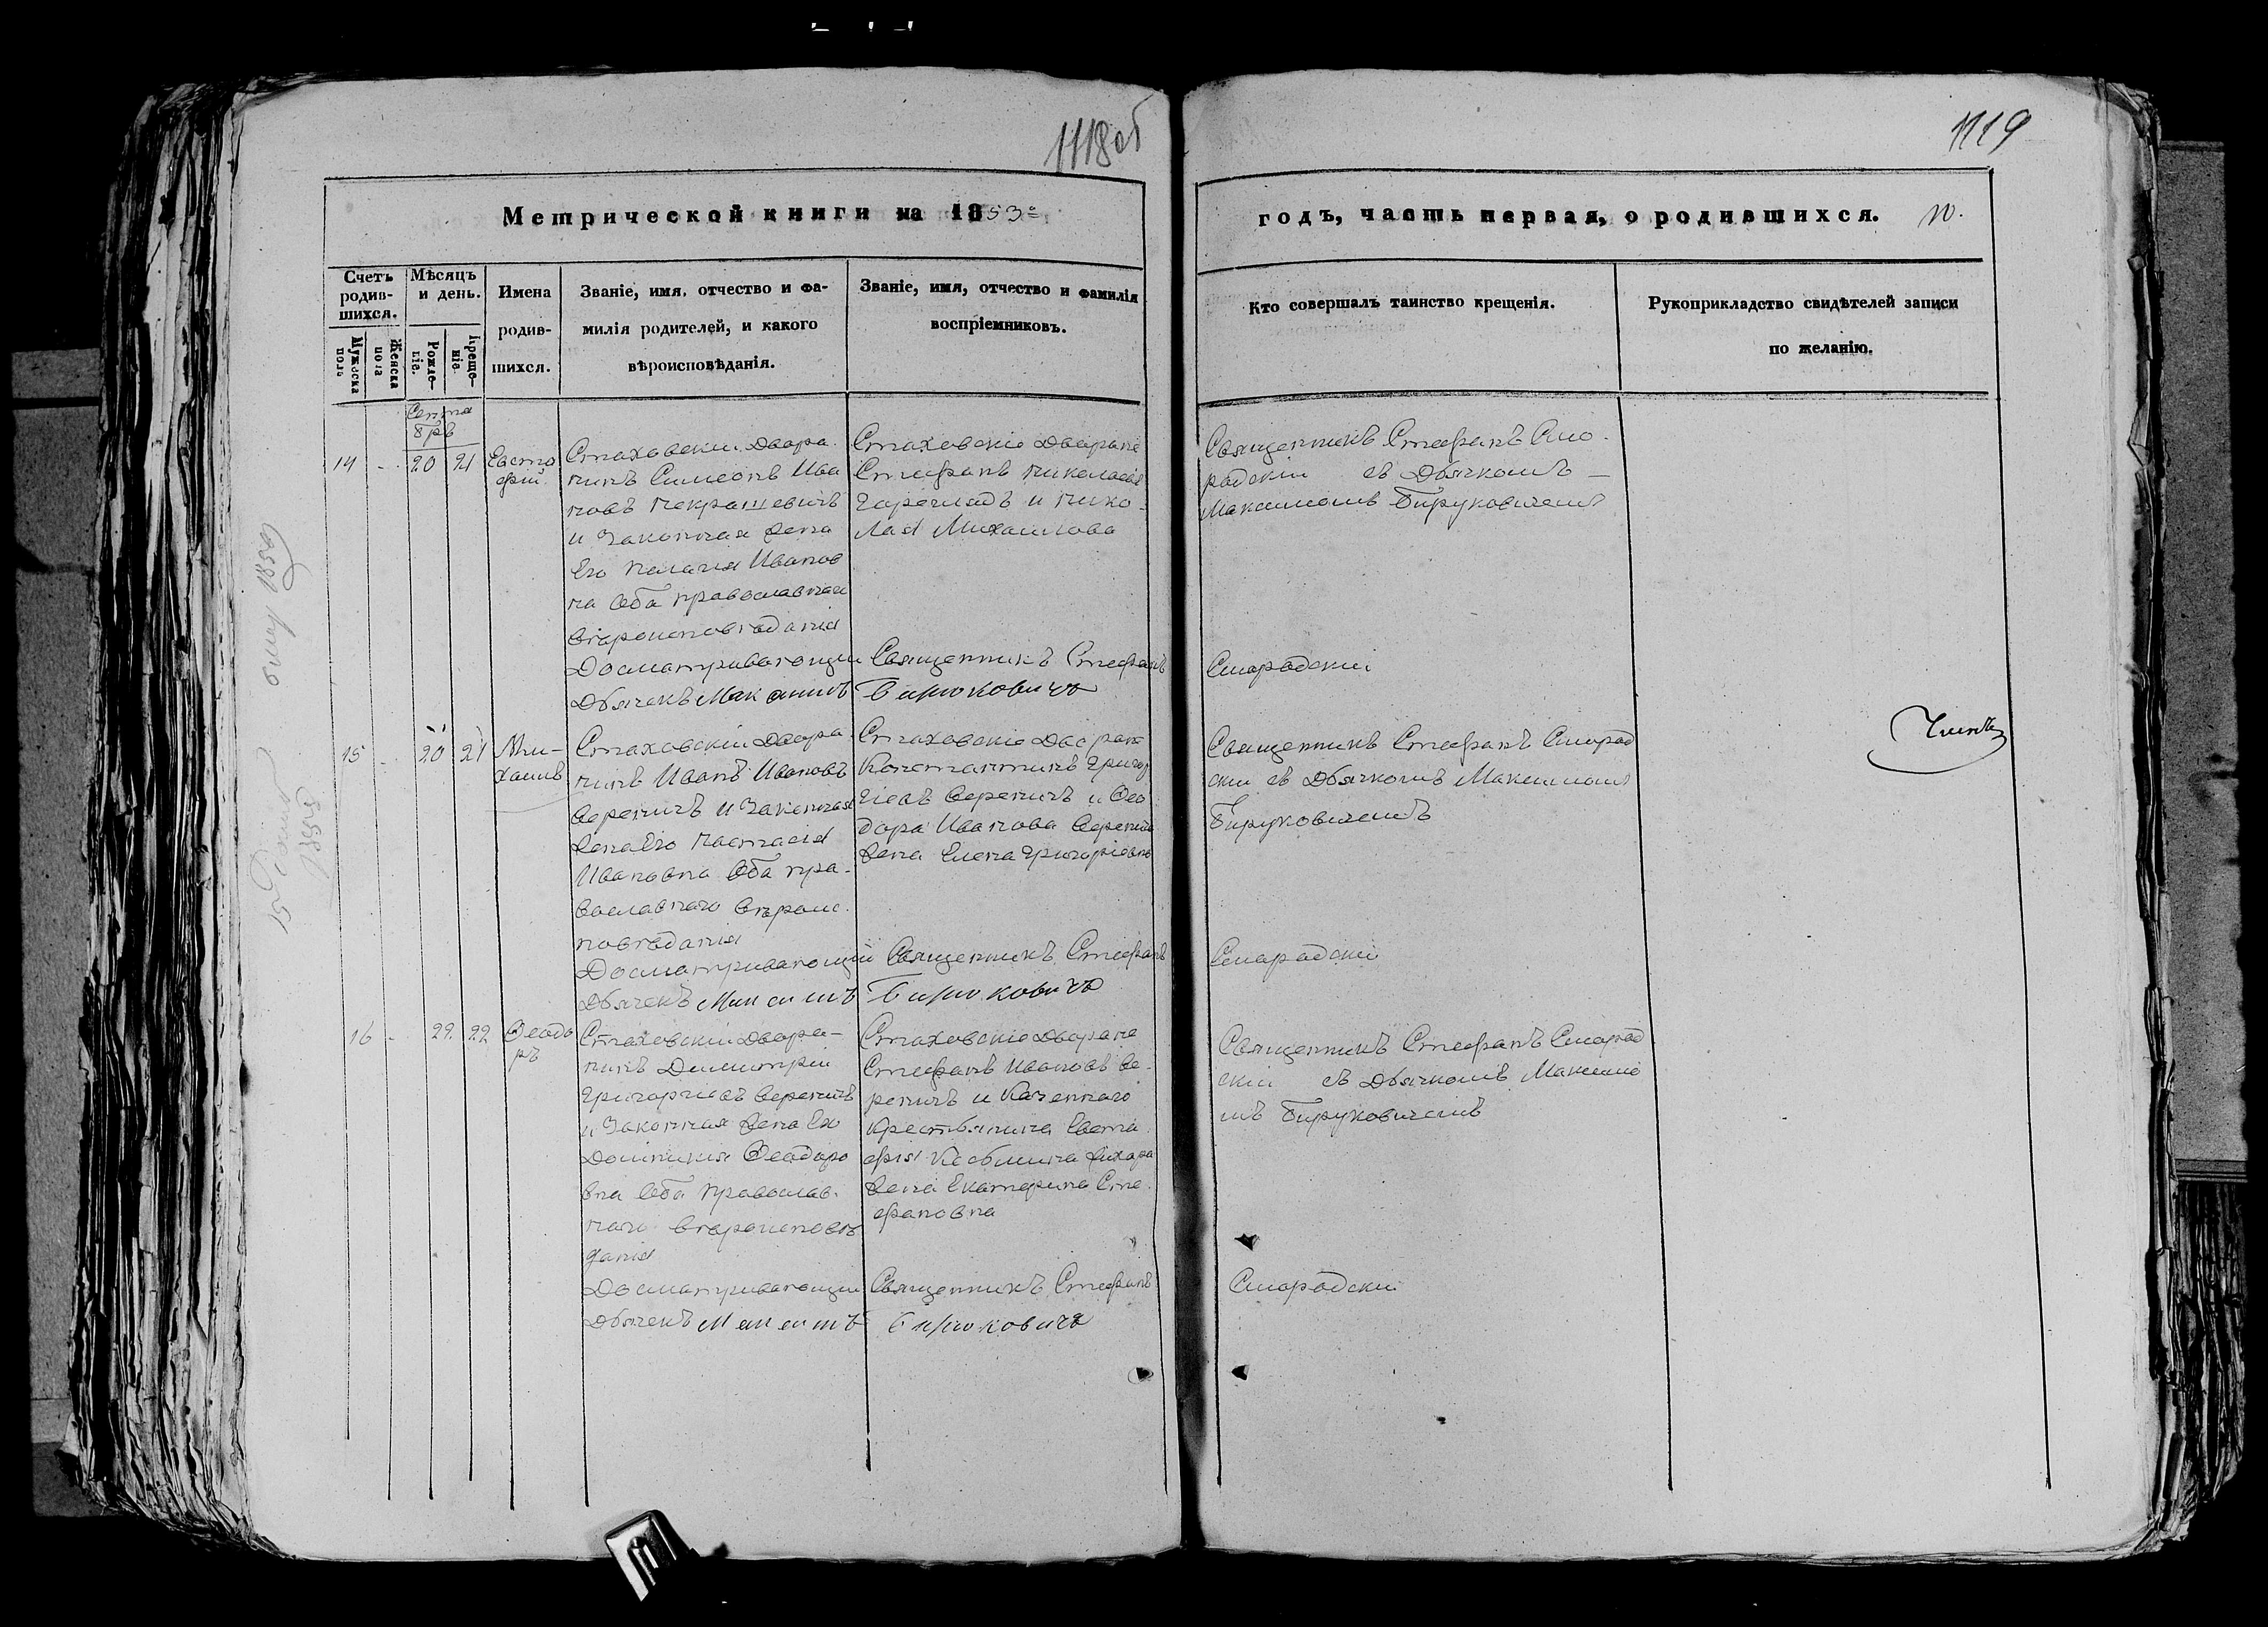 1118 об
1119
Метрической книги на 1853 го
годъ, часть первая, о родившихся.
10.
Счетъ родив-шихся.
Мужеска пола
Женска пола
Мѣсяцъ и день.
Рожде-нія.
Креще-нія.
Имена
родив-
шихся.
Званіе, имя, отчество и фа-
милія родителей, и какого
вѣроисповѣданія.
Званіе, имя, отчество и фамилія
воспріемниковъ.
Кто совершалъ таинство крещенія.
Рукоприкладство свидѣтелей записи
по желанію.
Сентя
брь
14 - 20 21
Евста
фій
Стаховскій Дворя
нинъ Симеонъ Ива
новъ Некрашевичъ
и Законная Жена
Его Пелагія Иванов
на Оба православнаго
вѣроисповѣданія
Стаховскіе Дворяне
Стефанъ Николаевъ
и Нико
лая Михайлова
Священникъ Стефанъ Смо
родскій съ Дьячкомъ
Максимомъ Бируковичемъ
Досматривающій Священникъ Стефанъ Смородскій
Дьячекъ Максимъ Бирюковичъ
15 - 20 21
Ми-
хаилъ
Стаховскій Дворя
нинъ Иванъ Ивановъ
Вереничъ и Законная
Жена Его Настасія
Ивановна Оба пра-
вославнаго вѣроис
повѣданія
Стаховскіе Дворяне
Константинъ Григор
іевъ Вереничъ и Ѳео
дора Иванова Веренича
Жена Елена Григоріевна
Священникъ Стефанъ Смород
скій съ Дьячкомъ Максимомъ
Бируковичемъ
Досматривающій Священникъ Стефанъ Смородскій
Дьячекъ Максимъ Бирюковичъ
16 - 22 22
Ѳеодо
ръ
Стаховскій Дворя-
нинъ Димитрій
Григоріевъ Вереничъ
и Законная Жена Его
Доминикія Ѳеодоро
вна Оба Православ
наго вѣроисповѣ
данія
Стаховскіе Дворяне
Стефанъ Ивановъ Ве-
реничъ и Казеннаго
Крестьянина Евста
фія Косьмича
Жена Екатерина Сте
фановна
Священникъ Стефанъ Смород
скій съ Дьячкомъ Максимо
мъ Бируковичемъ
Досматривающій Священникъ Стефанъ Смородскій
Дьячекъ Максимъ Бирюковичъ